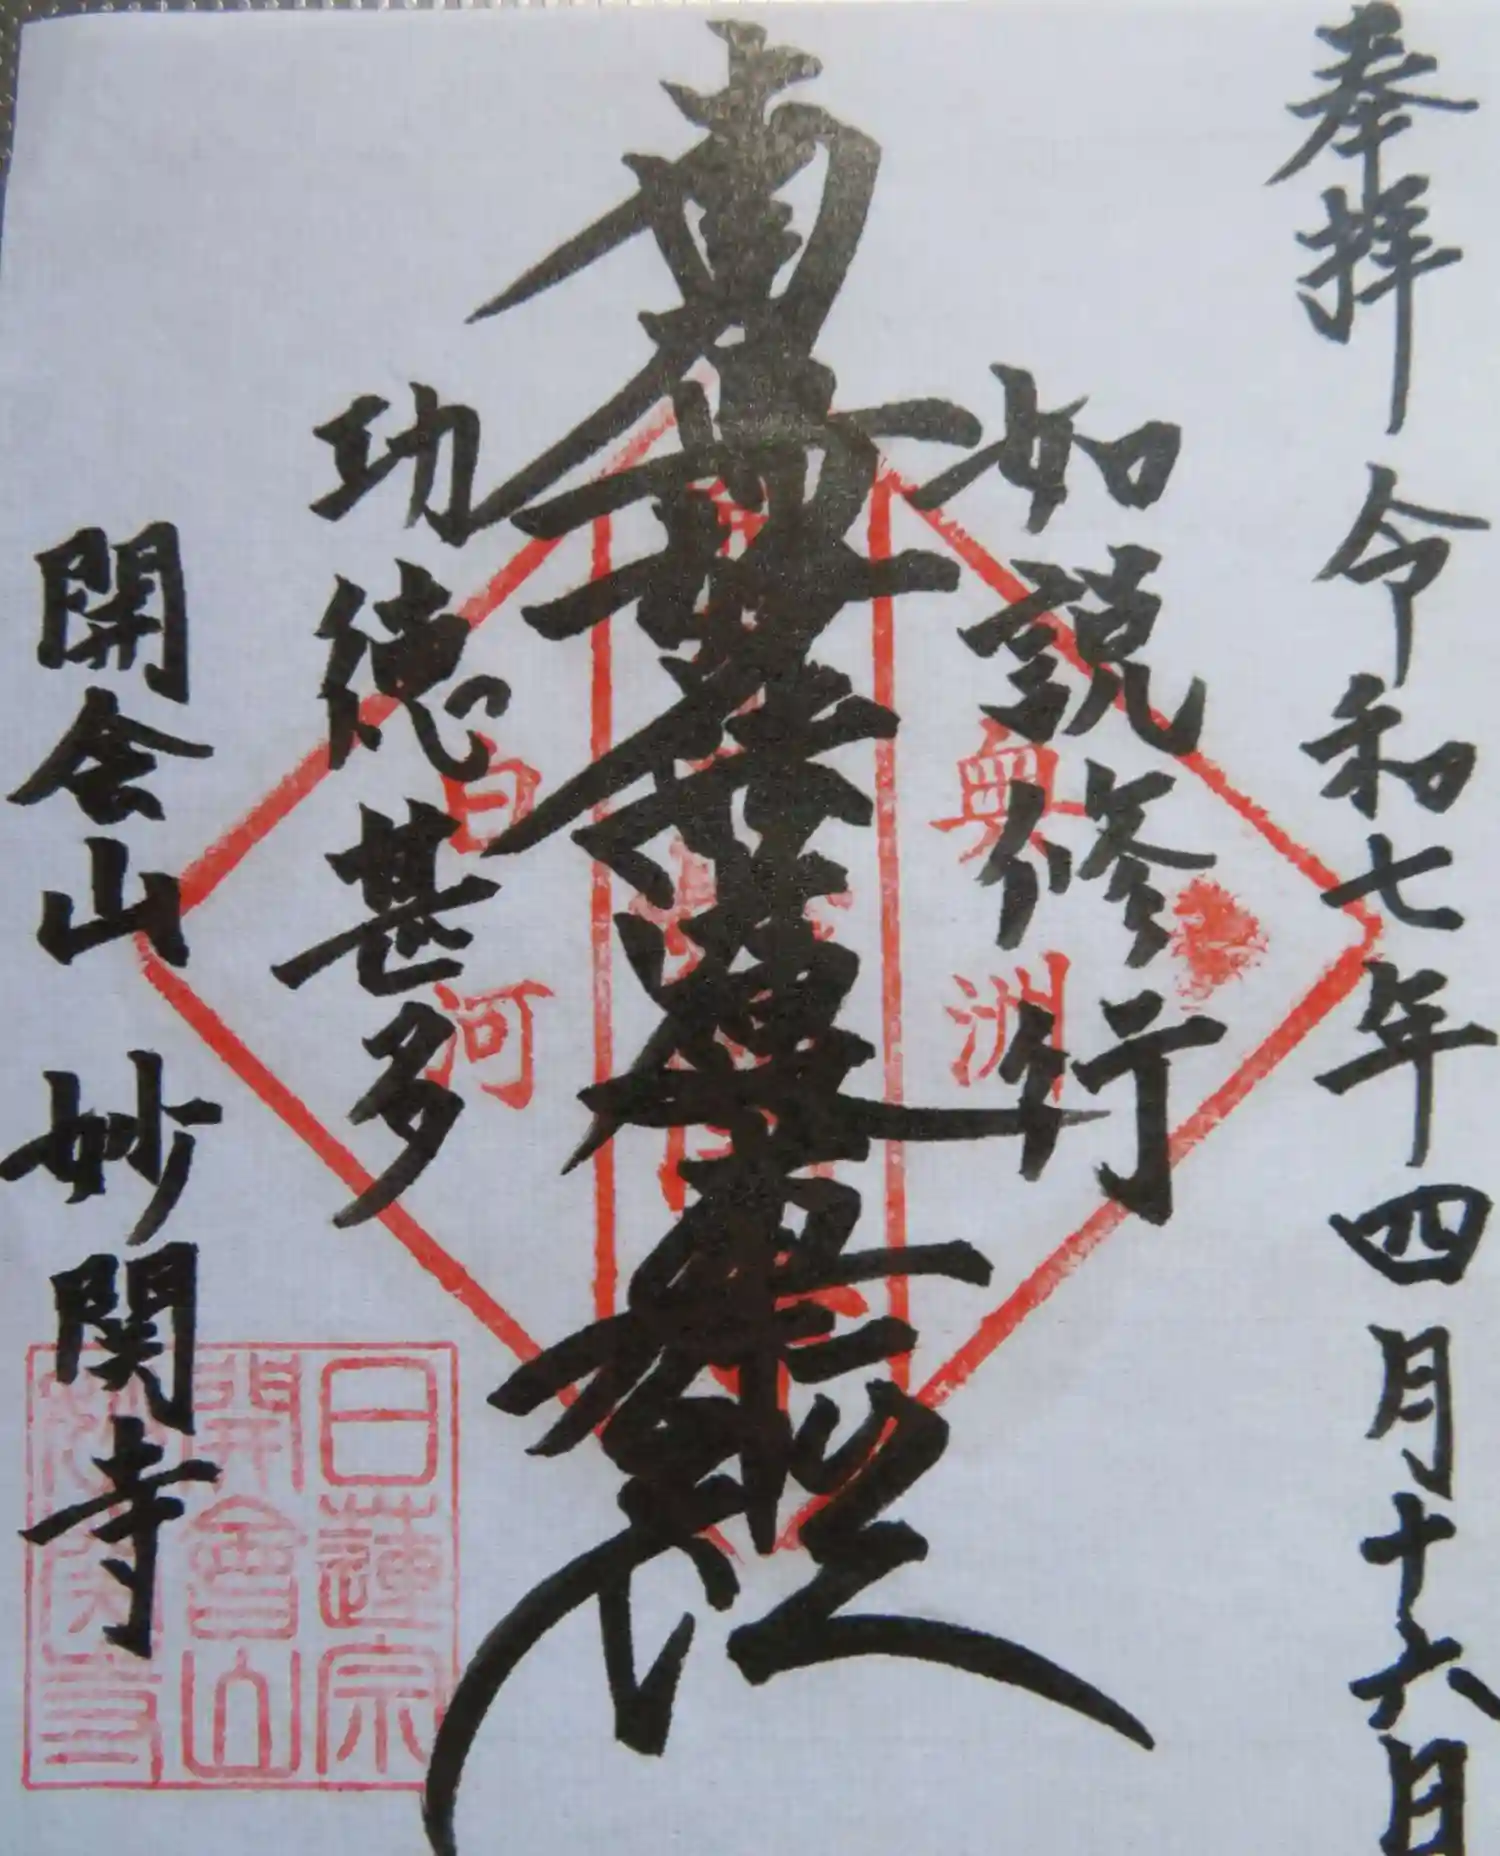 奉拝 令和七年四月十六日
如説修行
南無妙法蓮華経
功徳甚多
開会山 妙関寺
奥洲
白河
日蓮宗
開會山
妙関寺